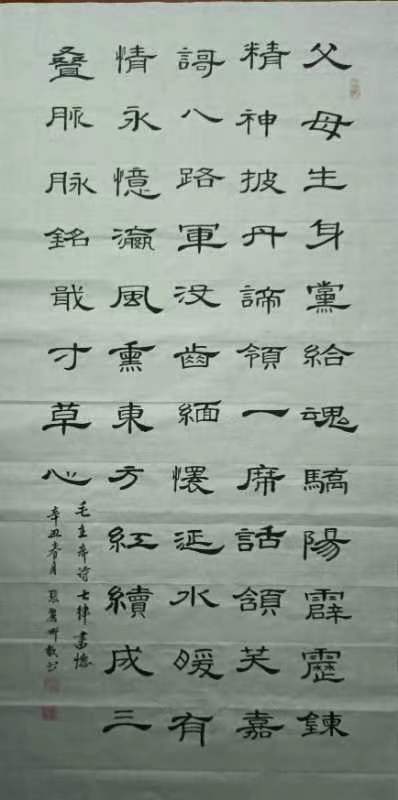 父母生身黨給魂驕陽霹靂鍊
精神披丹諦領一席話頷芙嘉
謌八路軍没齒緬懷延水暖有
情永憶瀛風熏東方紅續成三
叠脉脉銘戢寸草心
毛主席诗七律書憶
辛丑春月